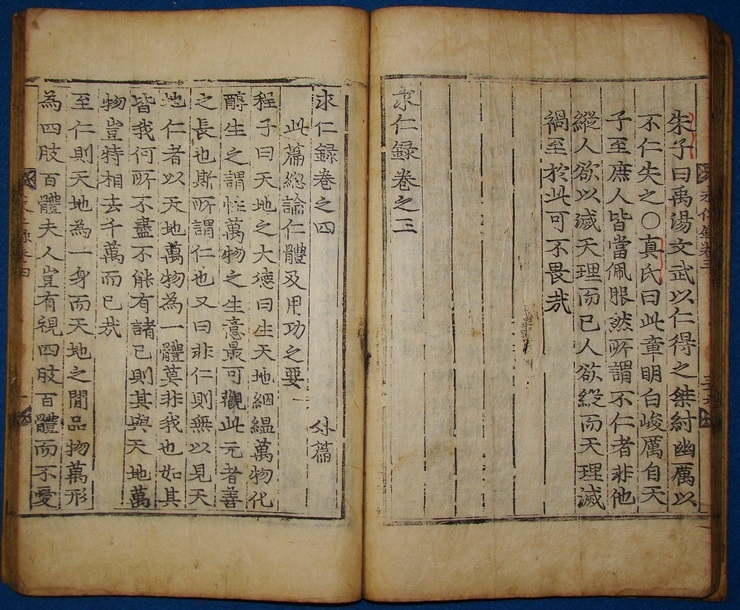 朱子曰禹湯文武以仁得之桀紂幽厲以
不仁失之〇真氏曰此章明白峻厲自天
子至庶人皆當佩服然所謂不仁者非他
縱人欲以滅天理而已人欲縱而天理滅
禍至於此可不畏哉
求仁録卷之三
求仁録卷之四
此篇緫論仁體及用功之要 外篇
程子曰天地之大德曰生天地絪緼萬物化
醇生之謂性萬物之生意最可觀此元者善
之長也斯所謂仁也又曰非仁則無以見天
地仁者以天地萬物為一體莫非我也如其
皆我何所不盡不能有諸己則其與天地萬
物豈特相去千萬而已哉
至仁則天地為一身而天地之間品物萬形
為四肢百體夫人豈有視四肢百體而不愛